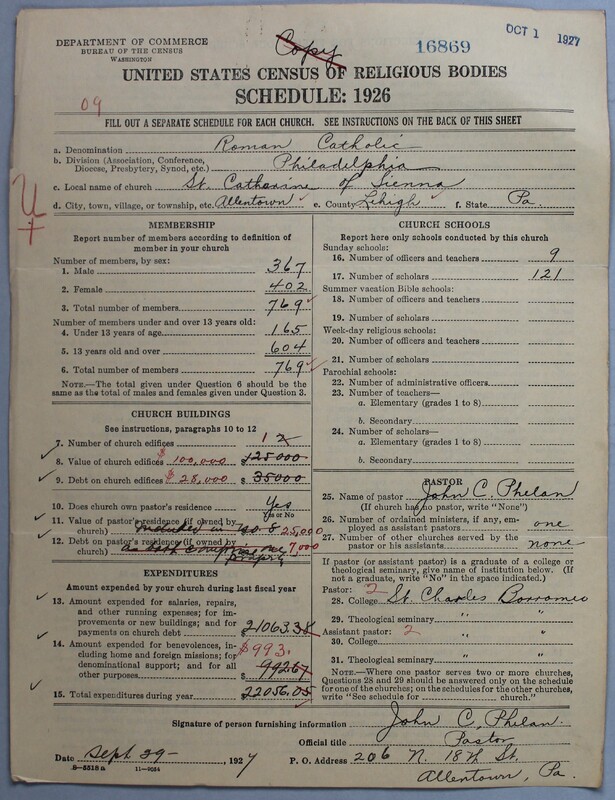 DEPARTMENT OF COMMERCE
BUREAU OF THE CENSUS
WASHINGTON
Copy
16869
OCT 1 1927
UNITED STATES CENSUS OF RELIGIOUS BODIES
SCHEDULE: 1926
09
FILL OUT A SEPARATE SCHEDULE FOR EACH CHURCH. SEE INSTRUCTIONS ON THE BACK OF THIS SHEET
a. Denomination Roman Catholic
b. Division (Association, Conference, Diocese, Presbytery, Synod, etc.) Philadelphia
c. Local name of church St. Catharine of Sienna
d. City, town, village, or township, etc. Allentown e. County Lehigh f. State Pa.
MEMBERSHIP
Report number of members according to definition of
member in your church
Number of members, by sex:
1. Male 367
2. Female 402
3. Total number of members 769
Number of members under and over 13 years old:
4. Under 13 years of age 165
5. 13 years old and over 604
6. Total number of members 769
NOTE.—The total given under Question 6 should be the
same as the total of males and females given under Question 3.
CHURCH BUILDINGS
See instructions, paragraphs 10 to 12
7. Number of church edifices 1 2
8. Value of church edifices $ 100,000 $125000
9. Debt on church edifices $ 28,000 $35000
10. Does church own pastor's residence Yes
Yes or No
11. Value of pastor's residence (if owned by
church) included in no. 8 25,000
12. Debt on pastor's residence (if owned by
church) 7,000
EXPENDITURES
Amount expended by your church during last fiscal year
13. Amount expended for salaries, repairs,
and other running expenses; for im-
provements or new buildings; and for
payments on church debt $21063.38
14. Amount expended for benevolences, in-
cluding home and foreign missions; for $993.
denominational support; and for all
other purposes $ 992.67
15. Total expenditures during year $22056.05
CHURCH SCHOOLS
Report here only schools conducted by this church
Sunday schools:
16. Number of officers and teachers 9
17. Number of scholars 121
Summer vacation Bible schools:
18. Number of officers and teachers
19. Number of scholars
Week-day religious schools:
20. Number of officers and teachers
21. Number of scholars
Parochial schools:
22. Number of administrative officers
23. Number of teachers—
a. Elementary (grades 1 to 8)
b. Secondary
24. Number of scholars—
a. Elementary (grades 1 to 8)
b. Secondary
PASTOR
25. Name of pastor John C. Phelan
(If church has no pastor, write "None")
26. Number of ordained ministers, if any, em-
ployed as assistant pastors one
27. Number of other churches served by the
pastor or his assistants none
If pastor (or assistant pastor) is a graduate of a college or
theological seminary, give name of institution below. (If
not a graduate, write "No" in the space indicated.)
Pastor: 2
28. College St. Charles Borromeo
29. Theological seminary " "
Assistant pastor: 2
30. College " "
31. Theological seminary " "
NOTE.—Where one pastor serves two or more churches,
Questions 28 and 29 should be answered only on the schedule
for one of the churches; on the schedules for the other churches,
write "See schedule for church."
Signature of person furnishing information John C. Phelan.
Official title Pastor
Date Sept 29- , 1927 P. O. Address 206 N. 18th St.
8—5518 a 11—9034 Allentown, Pa.